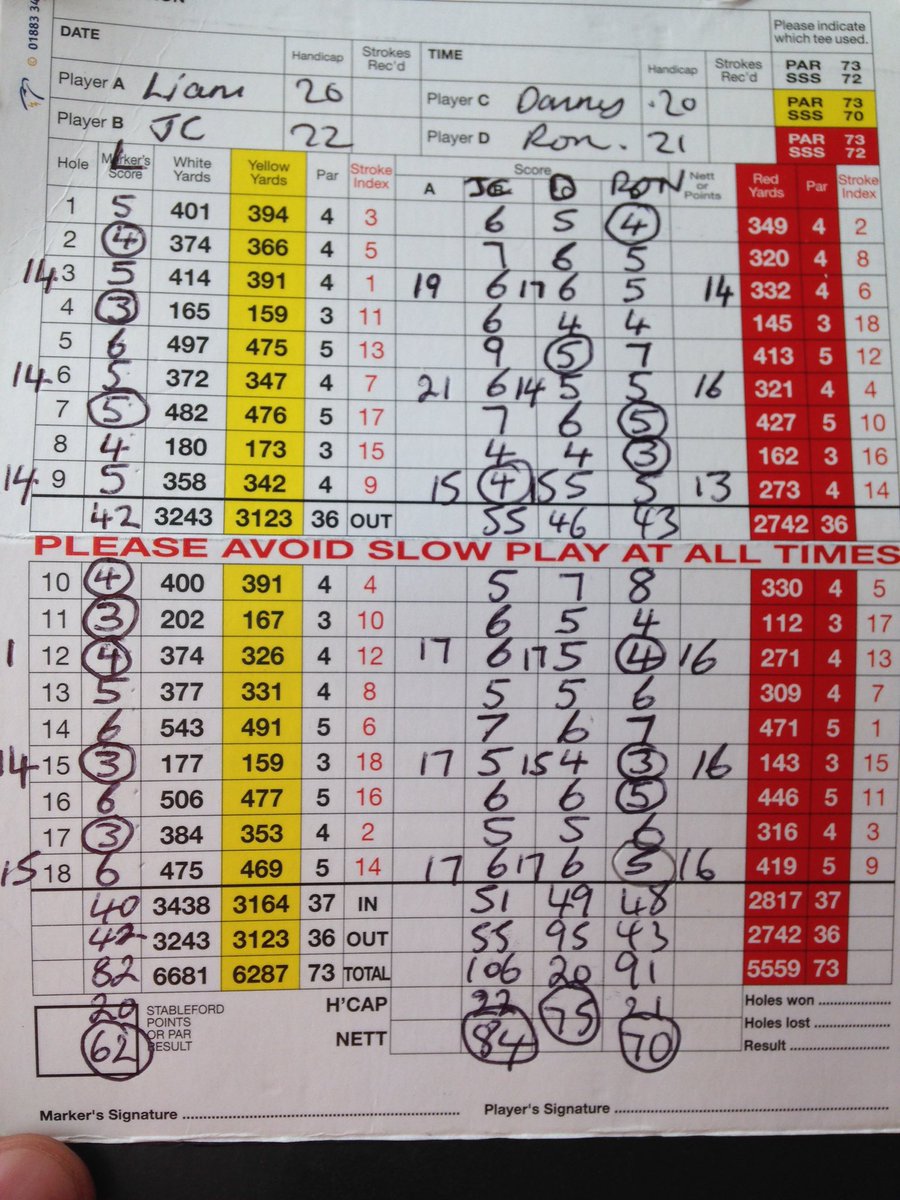 01883 34
DATE
Handicap
Strokes Rec'd
TIME
Handicap
Strokes Rec'd
Please indicate which tee used.
PAR 73
SSS 72
PAR 73
SSS 70
PAR 73
SSS 72
Player A Liam 20
Player B JC 22
Player C Danny .20
Player D Ron. 21
Hole L Marker's Score White Yards Yellow Yards Par Stroke Index Score A JC D RON Nett or Points Red Yards Par Stroke Index
1 5 401 394 4 3 6 5 4 349 4 2
2 4 374 366 4 5 7 6 5 320 4 8
14 3 5 414 391 4 1 19 6 17 6 5 14 332 4 6
4 3 165 159 3 11 6 4 4 145 3 18
5 6 497 475 5 13 9 5 7 413 5 12
14 6 5 372 347 4 7 21 6 14 5 5 16 321 4 4
7 5 482 476 5 17 7 6 5 427 5 10
8 4 180 173 3 15 4 4 3 162 3 16
14 9 5 358 342 4 9 15 4 15 5 5 13 273 4 14
42 3243 3123 36 OUT 55 46 43 2742 36
PLEASE AVOID SLOW PLAY AT ALL TIMES
10 4 400 391 4 4 5 7 8 330 4 5
11 3 202 167 3 10 6 5 4 112 3 17
1 12 4 374 326 4 12 17 6 17 5 4 16 271 4 13
13 5 377 331 4 8 5 5 6 309 4 7
14 6 543 491 5 6 7 6 7 471 5 1
14 15 3 177 159 3 18 17 5 15 4 3 16 143 3 15
16 6 506 477 5 16 6 6 5 446 5 11
17 3 384 353 4 2 5 5 6 316 4 3
15 18 6 475 469 5 14 17 6 17 6 5 16 419 5 9
40 3438 3164 37 IN 51 49 48 2817 37
42 3243 3123 36 OUT 55 95 43 2742 36
82 6681 6287 73 TOTAL 106 20 91 5559 73
20 STABLEFORD POINTS OR PAR RESULT H'CAP 22 75 21 Holes won
62 NETT 84 70 Holes lost
Result
Marker's Signature
Player's Signature